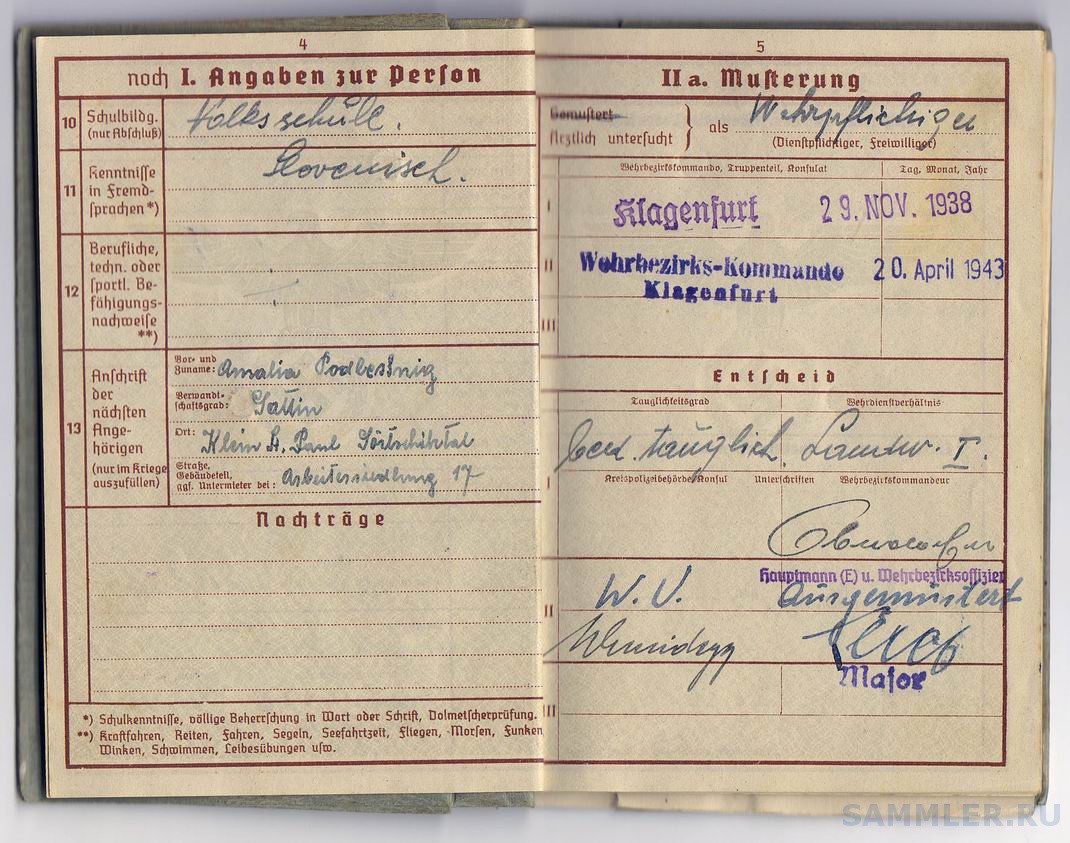 4
noch I. Angaben zur Person
10 Schulbildg. (nur Abschluß)
Volksschule.
11 Kenntnisse in Fremd-
sprachen*)
Slovenisch.
12 Berufliche,
techn. oder
sportl. Be-
fähigungs-
nachweise
**)
13 Anschrift
der
nächsten
Ange-
hörigen
(nur im Kriege
auszufüllen)
Vor- und
Zuname: Amalia Podbesnig
Verwandt-
schaftsgrad: Gattin
Ort: Klein St. Paul Görtschitztal
Straße,
Gebäudeteil,
ggf. Untermieter bei: Arbeitersiedlung 17
Nachträge
*) Schulkenntnisse, völlige Beherrschung in Wort oder Schrift, Dolmetscherprüfung.
**) Kraftfahren, Reiten, Fahren, Segeln, Seefahrtzeit, Fliegen, Morsen, Funken
Winken, Schwimmen, Leibesübungen usw.
5
II a. Musterung
Gemustert
Ärztlich untersucht } als Wehrpflichtiger
(Dienstpflichtiger, Freiwilliger)
Wehrbezirkskommando, Truppenteil, Konsulat Tag, Monat, Jahr
I Klagenfurt 29. NOV. 1938
II Wehrbezirks-Kommando 20. April 1943
Klagenfurt
III
Entscheid
Tauglichkeitsgrad Wehrdienstverhältnis
I bed. tauglich. Landw. I.
Kreispolizeibehörde/Konsul Unterschriften Wehrbezirkskommandeur
Hauptmann (E) u. Wehrbezirksoffizier
II W. U. Ausgemustert
Major
III
SAMMLER.RU